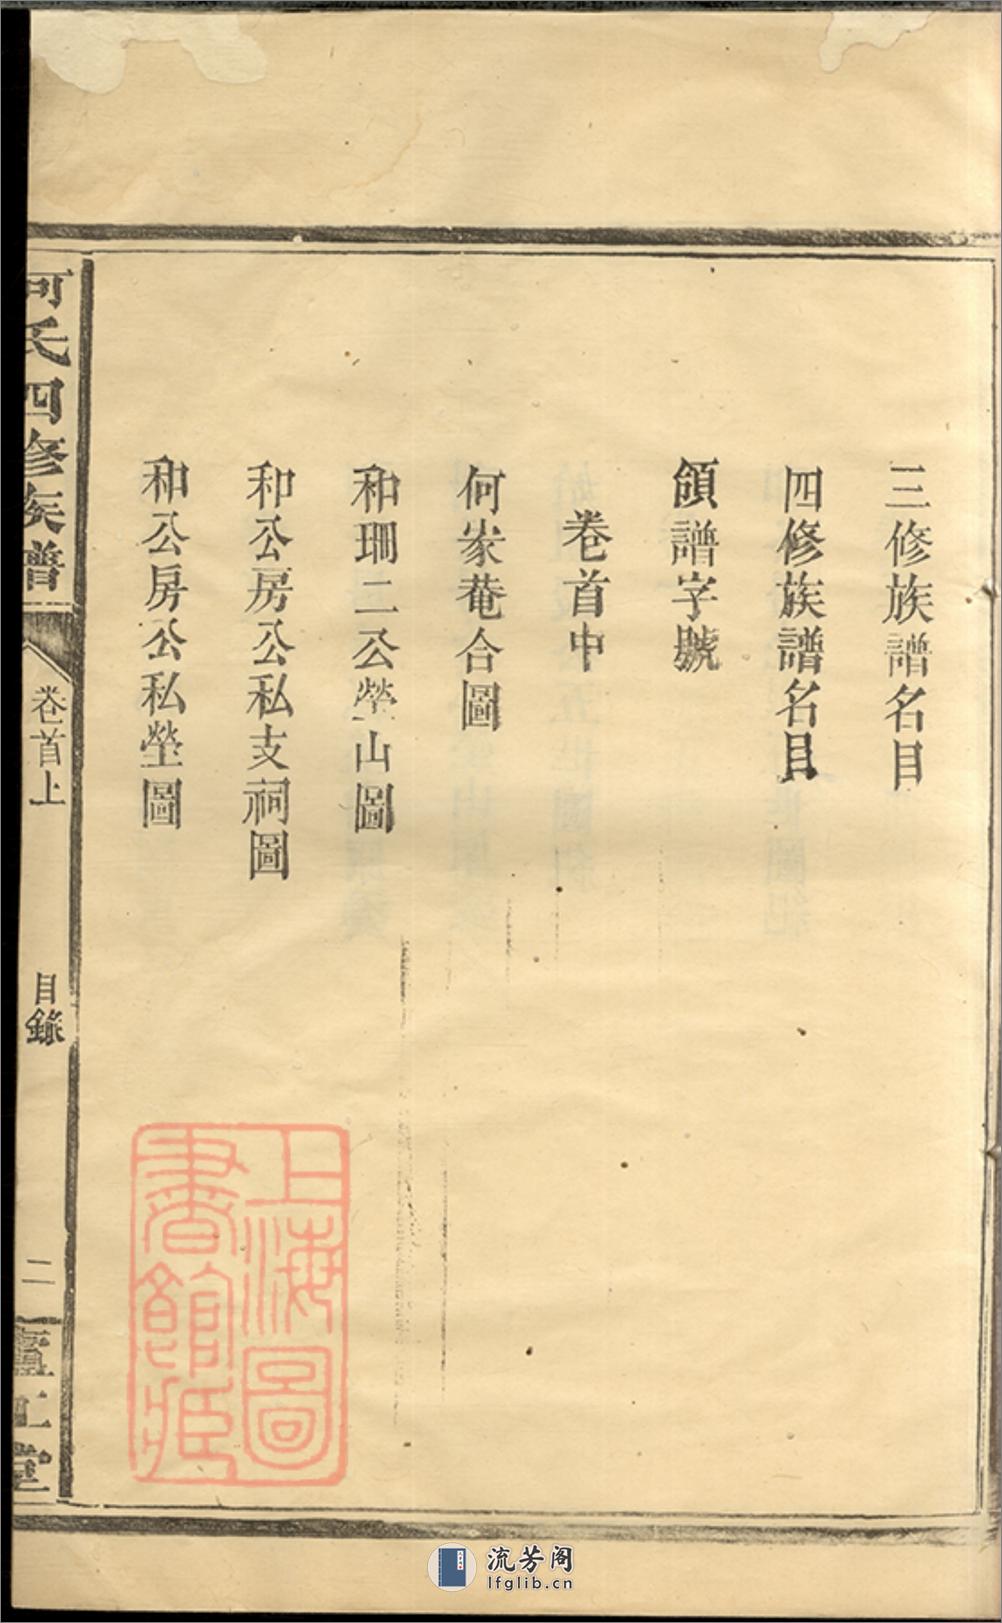 三修族譜名目
四修族譜名目
領譜字號
卷首中
何家菴合圖
和珊二公塋山圖
和公房公私支祠圖
和公房公私塋圖
何氏四修族譜
卷首上
目錄
二
廬江堂
上海圖
書館藏
流芳阁
lfglib.cn